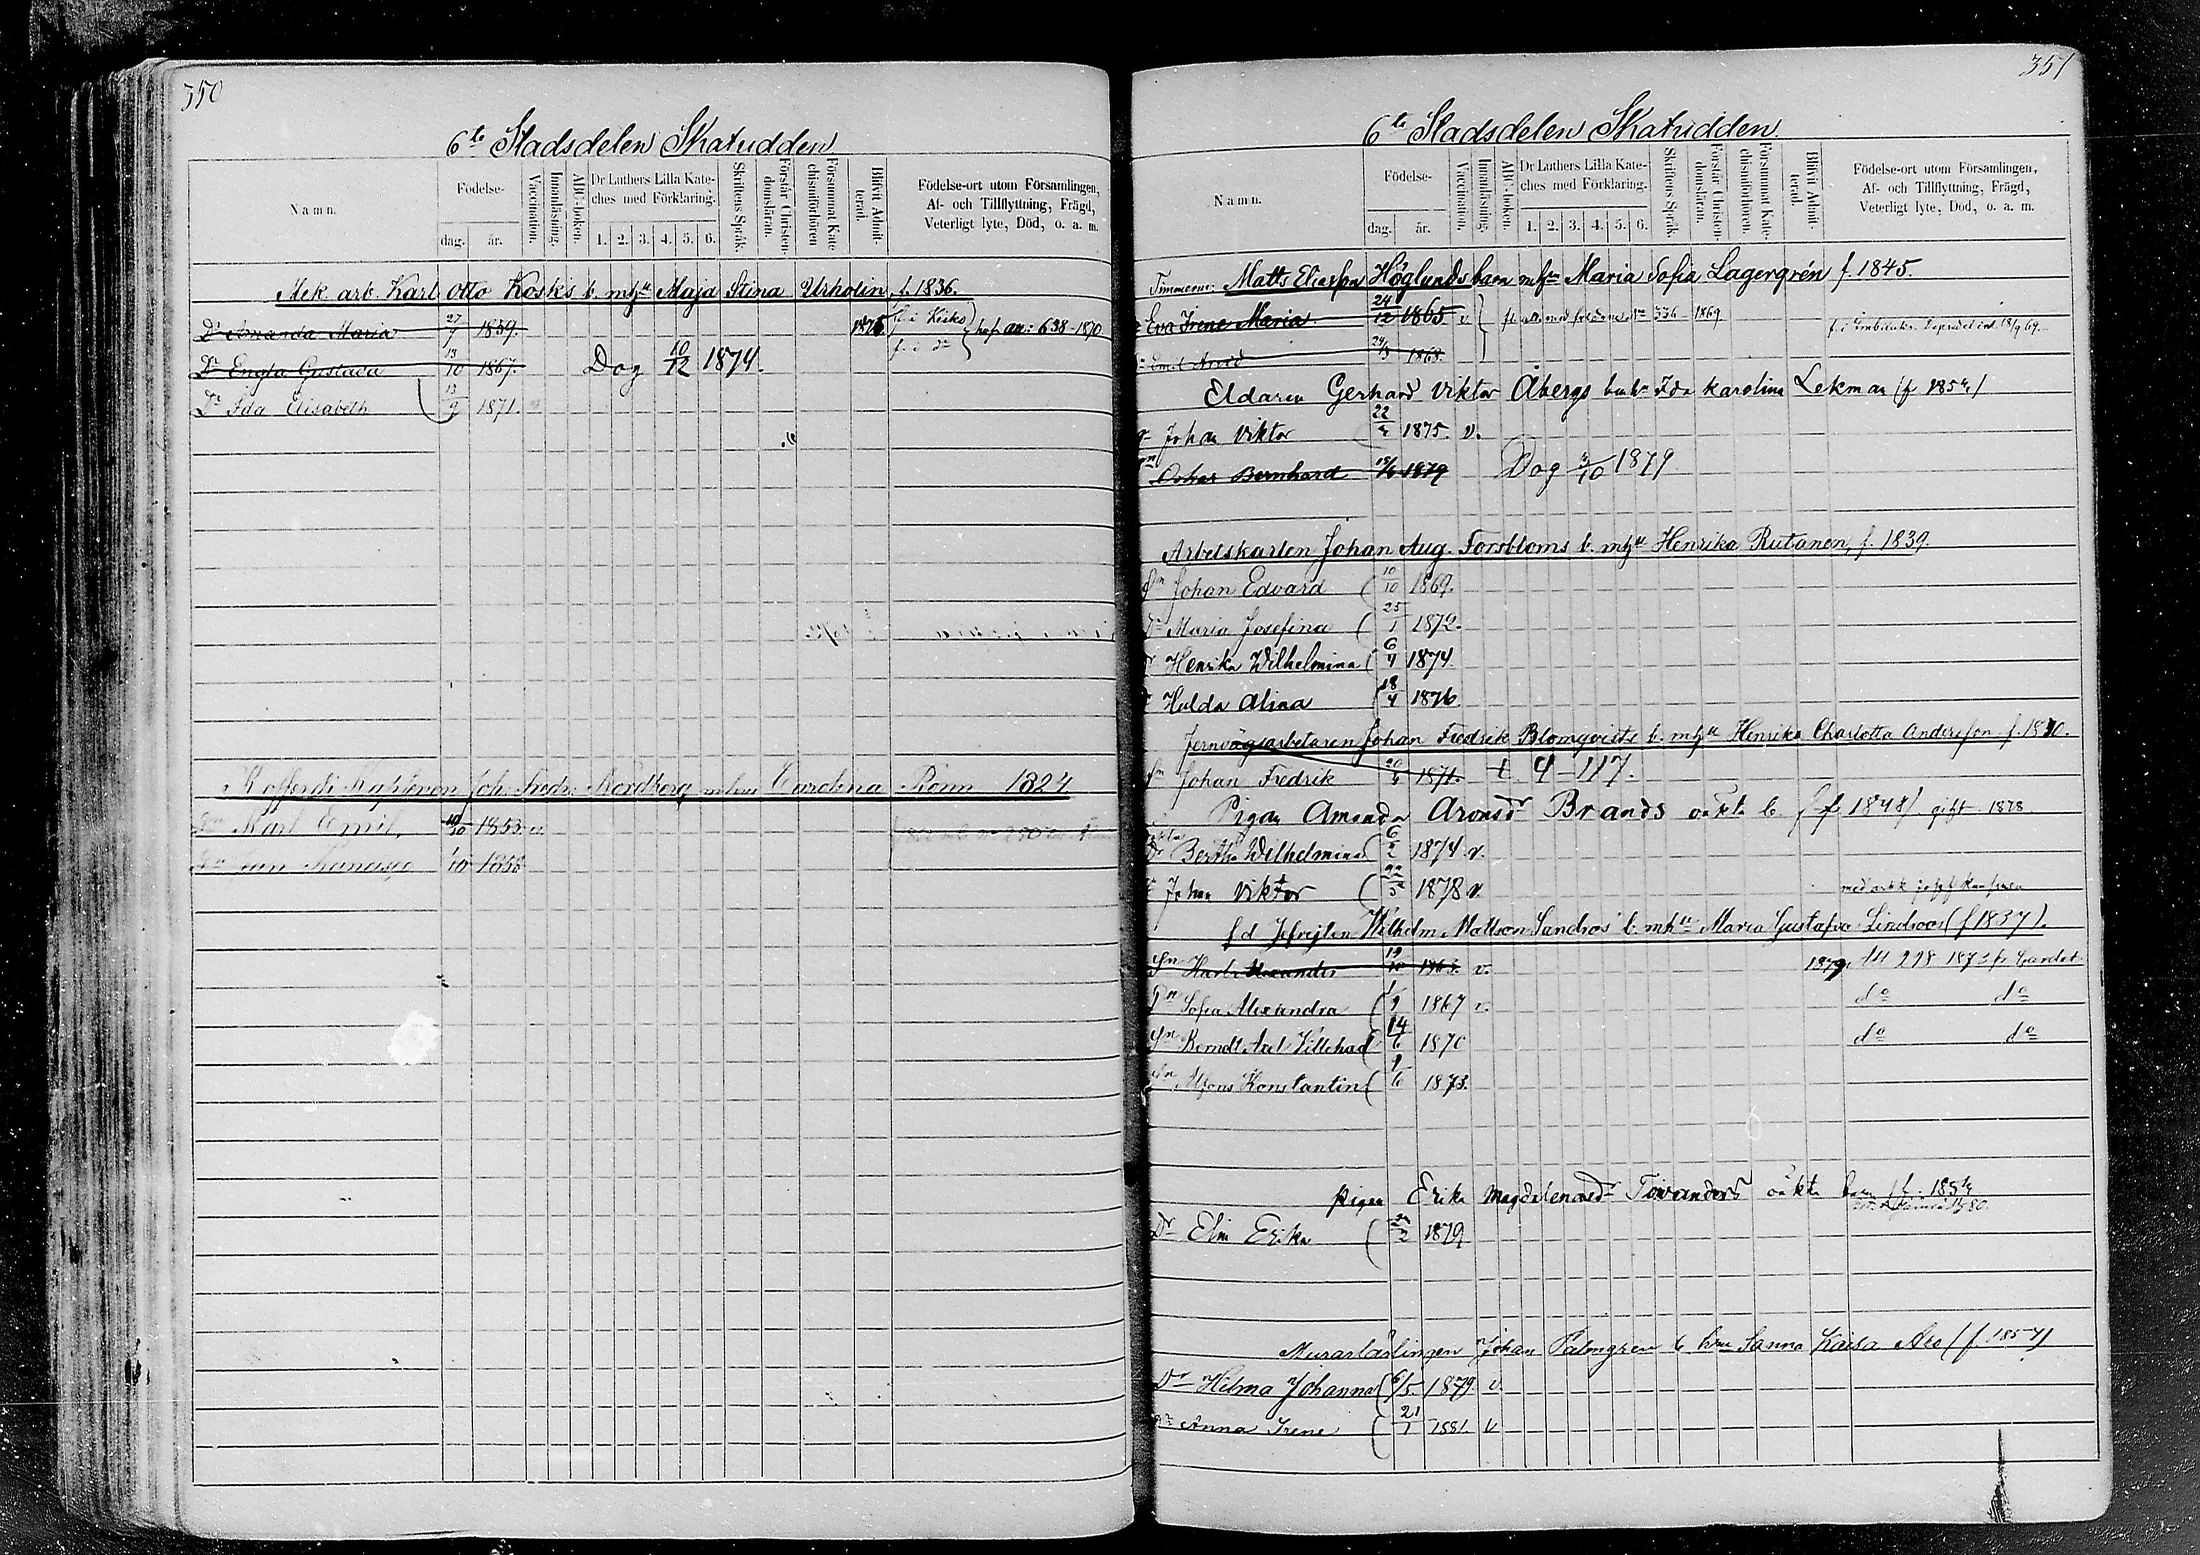 350
6te Stadsdelen Skatudden
Namn.
Födelse-
dag. år.
Vaccination.
Innanläsning.
ABC-boken.
Dr Luthers Lilla Kate-
ches med Förklaring.
1. 2. 3. 4. 5. 6.
Skriftens Språk.
Förstår Christen-
domsläran.
Försummat Kate-
chismiförhören
Blifvit Admit-
terad.
Födelse-ort utom Församlingen,
Af- och Tillflyttning, Frägd,
Veterligt lyte, Död, o. a. m.
Mek. arb. Karl Otto Kosks b. mhu Maja Stina Urholin, f. 1836.
Dr Amanda Maria 27/9 1859. 1876 f. i Kisko
Dr Engla Gustava 13/10 1867. Dog 10/12 1874. f. i do
Dr Ida Elisabeth 13/9 1871.
Joh. Fredr. Nordberg Carolina Rönn 1824
Karl Emil 1853 v.
10 1858
351
6te Stadsdelen Skatudden
Namn.
Födelse-
dag. år.
Vaccination.
Innanläsning.
ABC-boken.
Dr Luthers Lilla Kate-
ches med Förklaring.
1. 2. 3. 4. 5. 6.
Skriftens Språk.
Förstår Christen-
domsläran.
Försummat Kate-
chismiförhören.
Blifvit Admit-
terad.
Födelse-ort utom Församlingen,
Af- och Tillflyttning, Frägd,
Veterligt lyte, Död, o. a. m.
Timmerm. Matts Eliasson Höglunds barn mhu Maria Sofia Lagergrén f. 1845.
Eva Irene Maria 24/12 1865 v 336 1869
Emil Arvid 1868.
Eldaren Gerhard Viktor Åbergs Ida Karolina Lekman (f. 1854)
Johan Viktor 22/4 1875. v.
Oskar Bernhard 1879 Dog 1879
Arbetskarlen Johan Aug. Forsbloms b. mhu Henrika Rutanen, f. 1839.
Sn Johan Edvard 10/10 1869.
Dr Maria Josefina 25/1 1872.
Dr Henrika Wilhelmina 6/4 1874
Dr Hulda Alina 18/4 1876
Jernvägsarbetaren Johan Fredrik Blomqvists b. mhu Henrika Charlotta Andersson
Sn Johan Fredrik 20/4 1871. t 4–117.
Pigan Amanda Aronsdr Brands oäkta b. (f 1848) gift 1878
Dr Bertha Wilhelmina 6/2 1874 v.
Johan Viktor 22/5 1878 v
f.d. Wilhelm Mattson Sandros b. mhu Maria Gustafva Lindroos (f 1837).
Sn Karl Alexander 19/10 1863. v. 1879.
Dr Sofia Alexandra 1/9 1867 v. do do
Sn Berndt Axel Villehad 14/6 1870 do do
Sn Alfons Konstantin 9/6 1873.
Pigan Erika Magdalenasdr oäkta barn f. 1854
Dr Elin Erika 1879
Murarlärlingen Johan Palmgren b hru Sanna Kaisa (f. 1857)
Dr Hilma Johanna 6/5 1879. v.
Dr Anna Irene 21/1 1881. v